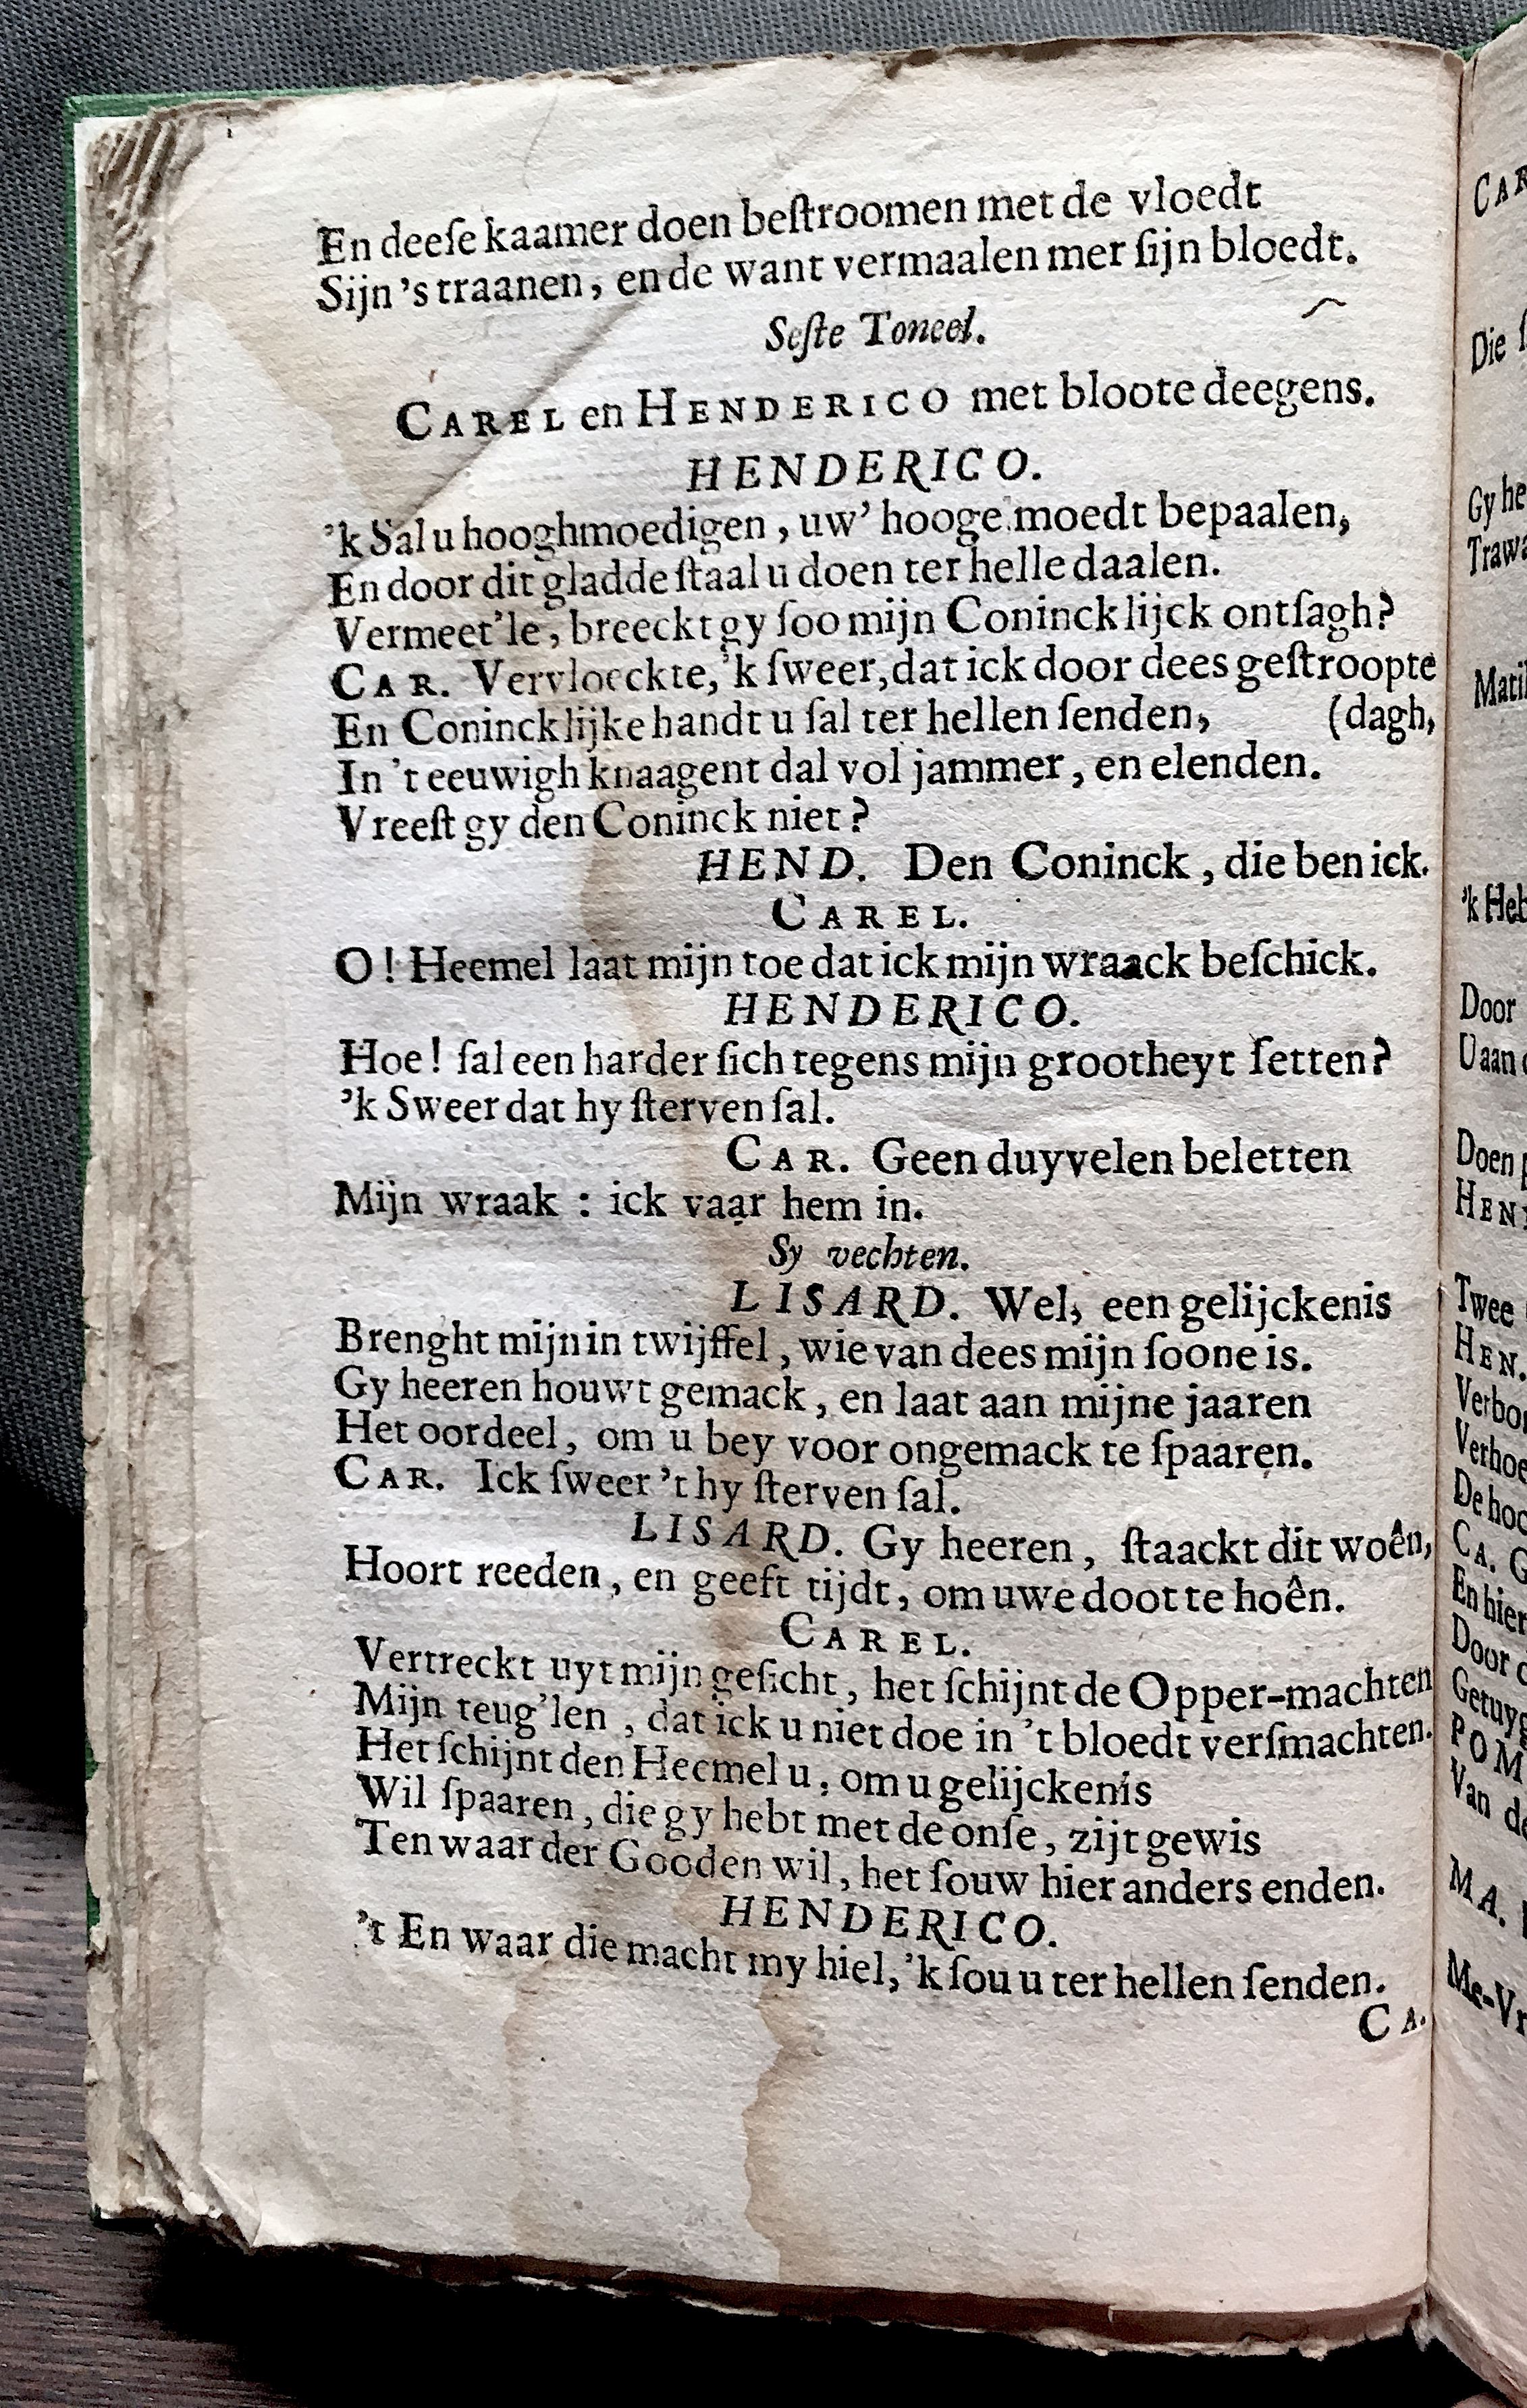 En deeſe kaamer doen beſtroomen met de vloedt
Sijn 's traanen, en de want vermaalen mer ſijn bloedt.
Seſte Toneel.
CAREL en HENDERICO met bloote deegens.
HENDERICO.
'k Sal u hooghmoedigen, uw' hooge moedt bepaalen,
En door dit gladde ſtaal u doen ter helle daalen.
Vermeet'le, breeckt gy ſoo mijn Conincklijck ontſagh?
CAR. Vervloeckte, 'k ſweer, dat ick door dees geſtroopte
En Conincklijke handt u ſal ter hellen ſenden, (dagh,
In 't eeuwigh knaagent dal vol jammer, en elenden.
Vreeſt gy den Coninck niet?
HEND. Den Coninck, die ben ick.
CAREL.
O! Heemel laat mijn toe dat ick mijn wraack beſchick.
HENDERICO.
Hoe! ſal een harder ſich tegens mijn grootheyt ſetten?
'k Sweer dat hy ſterven ſal.
CAR. Geen duyvelen beletten
Mijn wraak : ick vaar hem in.
Sy vechten.
LISARD. Wel, een gelijckenis
Brenght mijn in twijffel, wie van dees mijn ſoone is.
Gy heeren houwt gemack, en laat aan mijne jaaren
Het oordeel, om u bey voor ongemack te ſpaaren.
CAR. Ick ſweer 't hy ſterven ſal.
LISARD. Gy heeren, ſtaackt dit woên,
Hoort reeden, en geeft tijdt, om uwe doot te hoên.
CAREL.
Vertreckt uyt mijn geſicht, het ſchijnt de Opper-machten
Mijn teug'len, dat ick u niet doe in 't bloedt verſmachten.
Het ſchijnt den Heemel u, om u gelijckenis
Wil ſpaaren, die gy hebt met de onſe, zijt gewis
Ten waar der Gooden wil, het ſouw hier anders enden.
HENDERICO.
't En waar die macht my hiel, 'k ſou u ter hellen ſenden.
CA.
CAR
Die
Gy he
Trawa
Matil
'k Heb
Door
U aan
Doen
HEN
Twee
HEN.
Verbor
Verhoe
De hoo
CA. G
En hier
Door
Getuyg
POM
Van de
MA.
Me-Vr